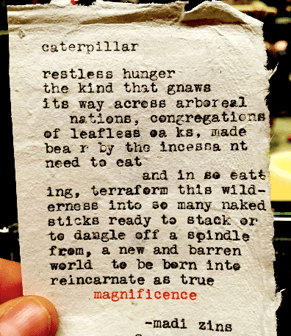 caterpillar
restless hunger
the kind that gnaws
its way across arboreal
nations, congregations
of leafless oa ks, made
bea r by the incessa nt
need to eat
and in so eatt
ing, terraform this wild-
erness into so many naked
sticks ready to stack or
to dangle off a spindle
from, a new and barren
world to be born into
reincarnate as true
magnificence
-madi zins